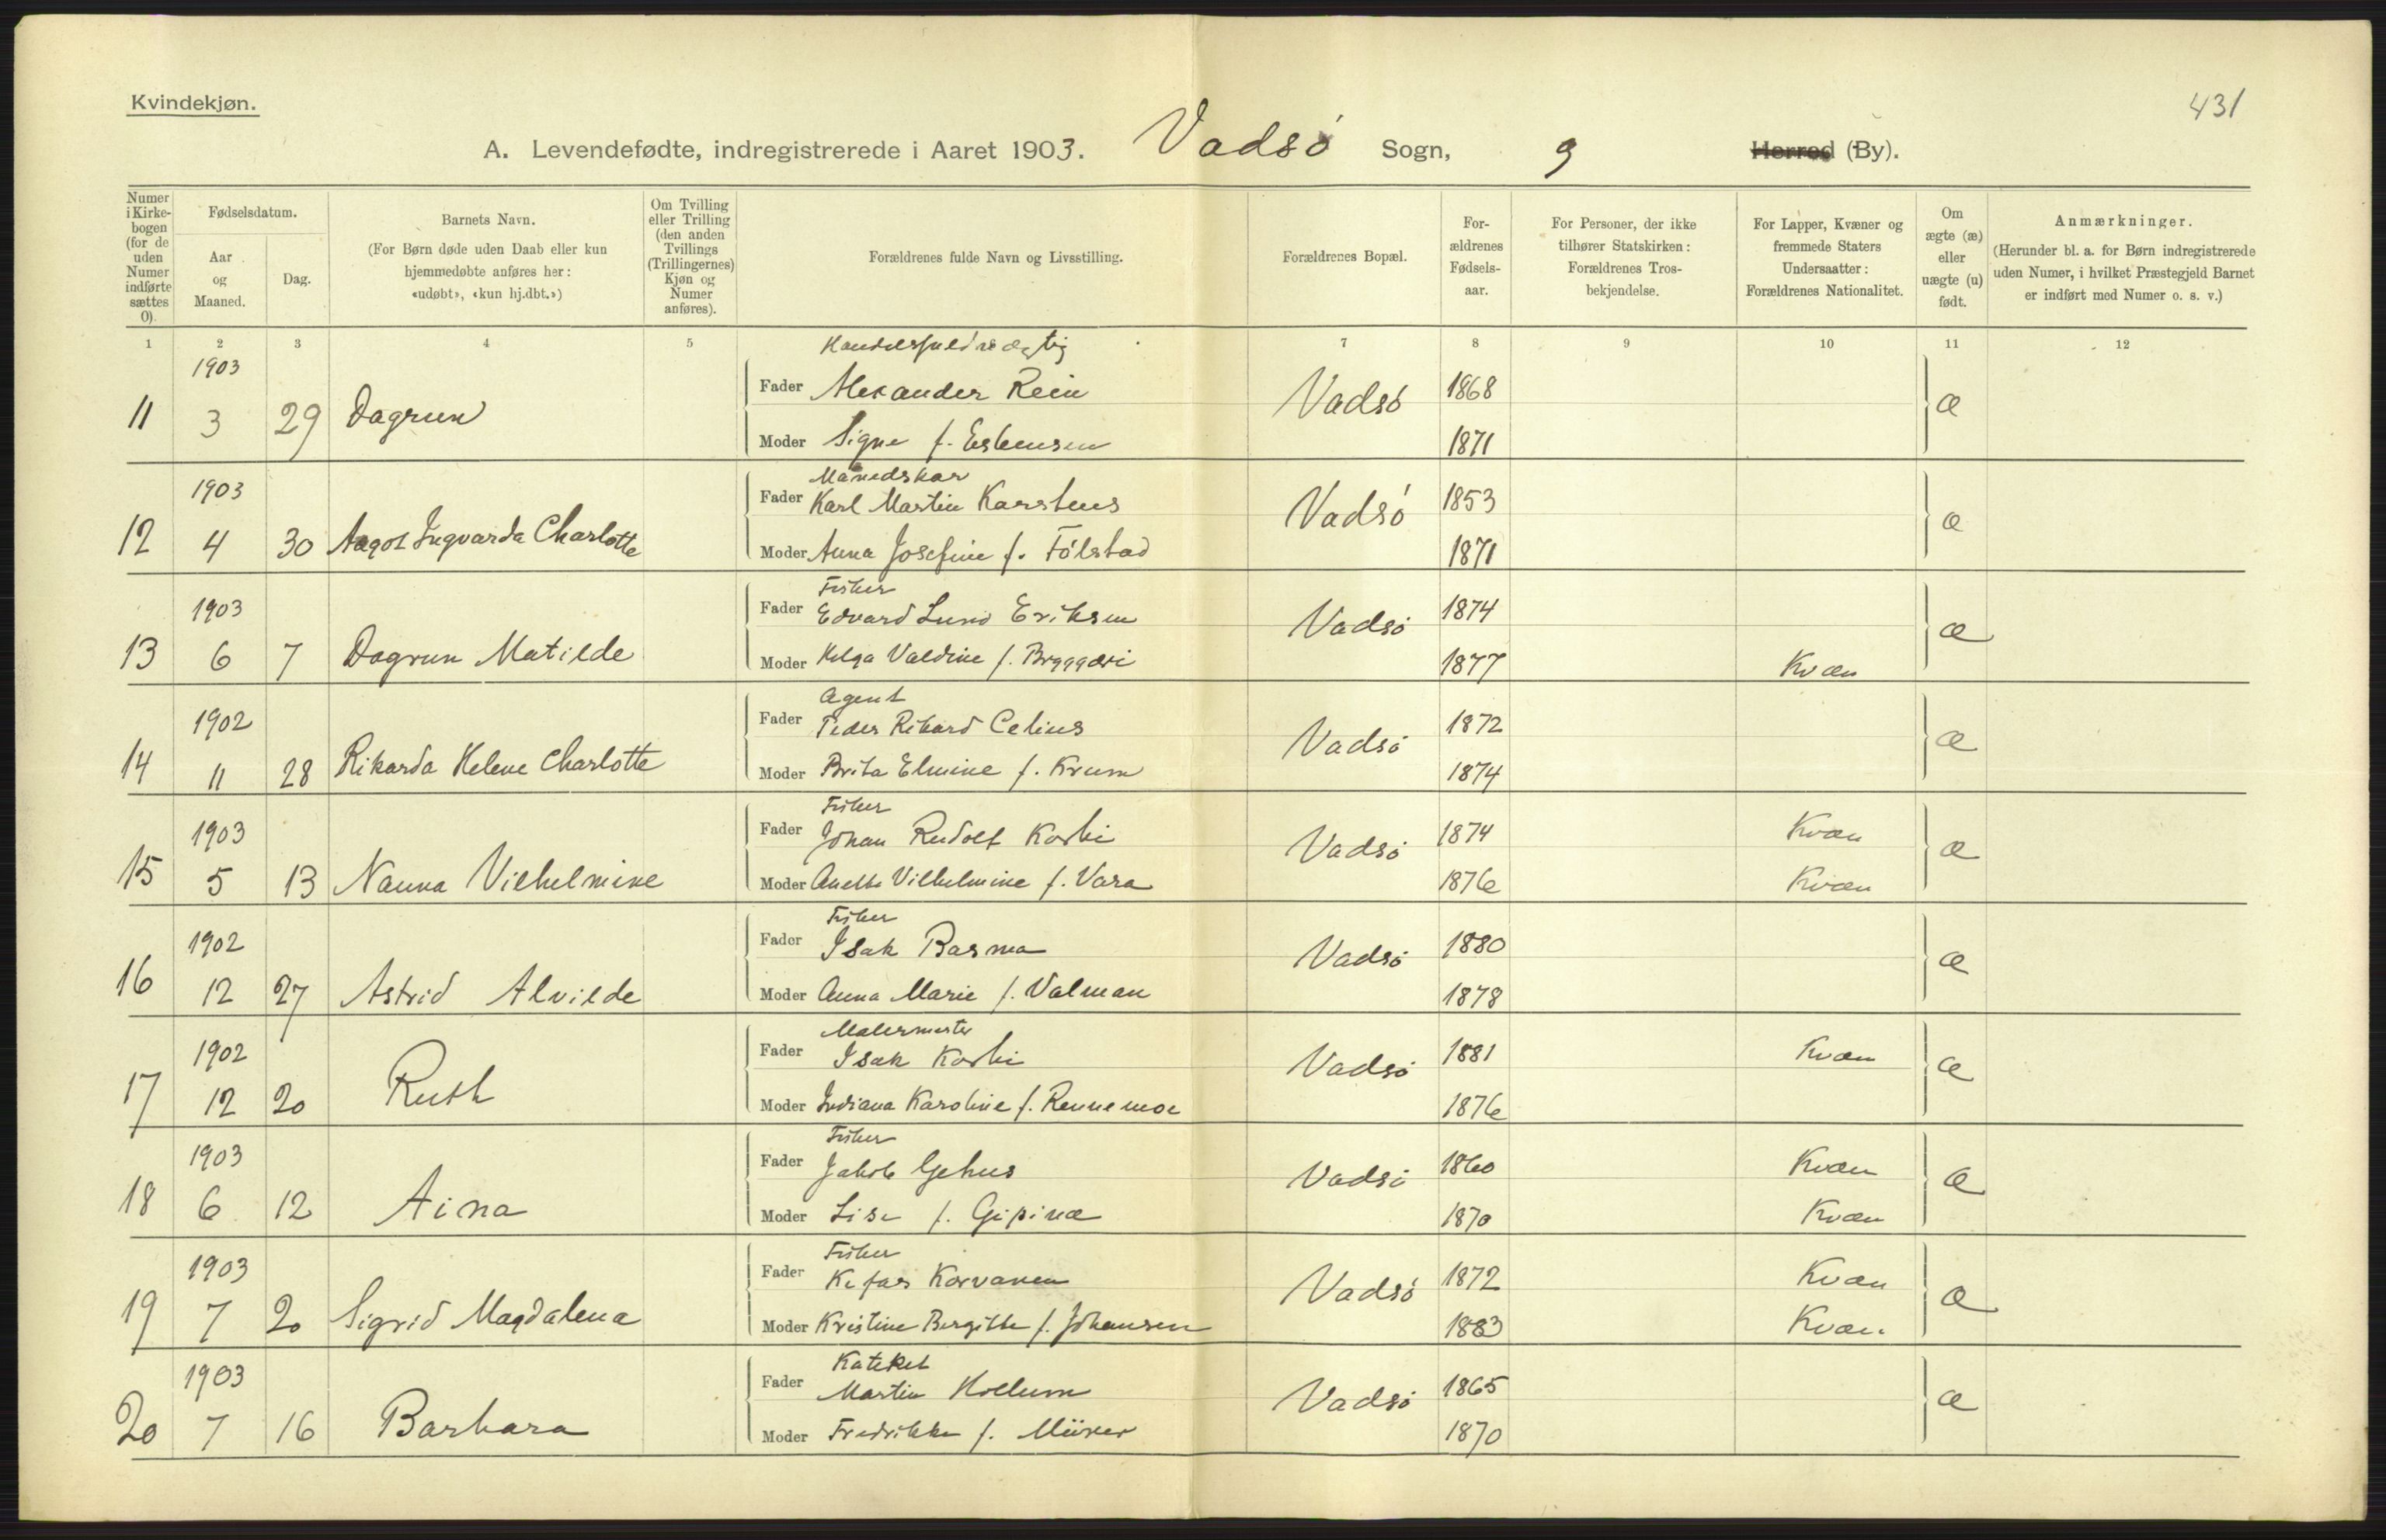 Kvindekjøn.
431
A. Levendefødte, indregistrerede i Aaret 1903. Vadsö Sogn, 9 Herred (By).
Numer i Kirke-bogen (for de uden Numer indførte sættes 0).
Fødselsdatum.
Aar og Maaned.
Dag.
Barnets Navn.
(For Børn døde uden Daab eller kun hjemmedøbte anføres her: «udøbt», «kun hj.dbt.»)
Om Tvilling eller Trilling (den anden Tvillings (Trillingernes) Kjøn og Numer anføres).
Forældrenes fulde Navn og Livsstilling.
Forældrenes Bopæl.
For-ældrenes Fødsels-aar.
For Personer, der ikke tilhører Statskirken: Forældrenes Tros-bekjendelse.
For Lapper, Kvæner og fremmede Staters Undersaatter: Forældrenes Nationalitet.
Om ægte (æ) eller uægte (u) født.
Anmærkninger.
(Herunder bl. a. for Børn indregistrerede uden Numer, i hvilket Præstegjeld Barnet er indført med Numer o. s. v.)
1 2 3 4 5 7 8 9 10 11 12
Handelsfuldmægtig
1903
Fader Alexander Rein Vadsö 1868 æ
11 3 29 Dagrun
Moder Signe f. Esbensen 1871
Månedskar
1903
Fader Karl Martin Karstens Vadsö 1853 æ
12 4 30 Aagot Ingvarda Charlotte
Moder Anna Josefine f. Fölstad 1871
Fisker
1903
Fader Edvard Lund Eriksen Vadsö 1874 æ
13 6 7 Dagrun Matilde
Moder Helga Valdine f. Bryggari 1877 Kvæn
Agent
1902
Fader Peder Rikard Celius Vadsö 1872 æ
14 11 28 Rikarda Helene Charlotte
Moder Brita Elmine f. Krum 1874
Fisker
1903
Fader Johan Rudolf Koski Vadsö 1874 Kvæn æ
15 5 13 Nanna Vilhelmine
Moder Anette Vilhelmine f. Vara 1876 Kvæn
Fisker
1902
Fader Isak Basma Vadsö 1880 æ
16 12 27 Astrid Alvilde
Moder Anna Marie f. Valman 1878
Malermester
1902
Fader Isak Koski Vadsö 1881 Kvæn æ
17 12 20 Ruth
Moder Indiana Karoline f. Rennemoe 1876
Fisker
1903
Fader Jakob Gehus Vadsö 1860 Kvæn æ
18 6 12 Aina
Moder Lise f. Gipinæ 1870 Kvæn
Fisker
1903
Fader Kefas Korvanen Vadsö 1872 Kvæn æ
19 7 20 Sigrid Magdalena
Moder Kristine Bergitte f. Johansen 1883 Kvæn
Kateket
1903
Fader Martin Hollum Vadsö 1865 æ
20 7 16 Barbara
Moder Fredrikke f. Mürer 1870